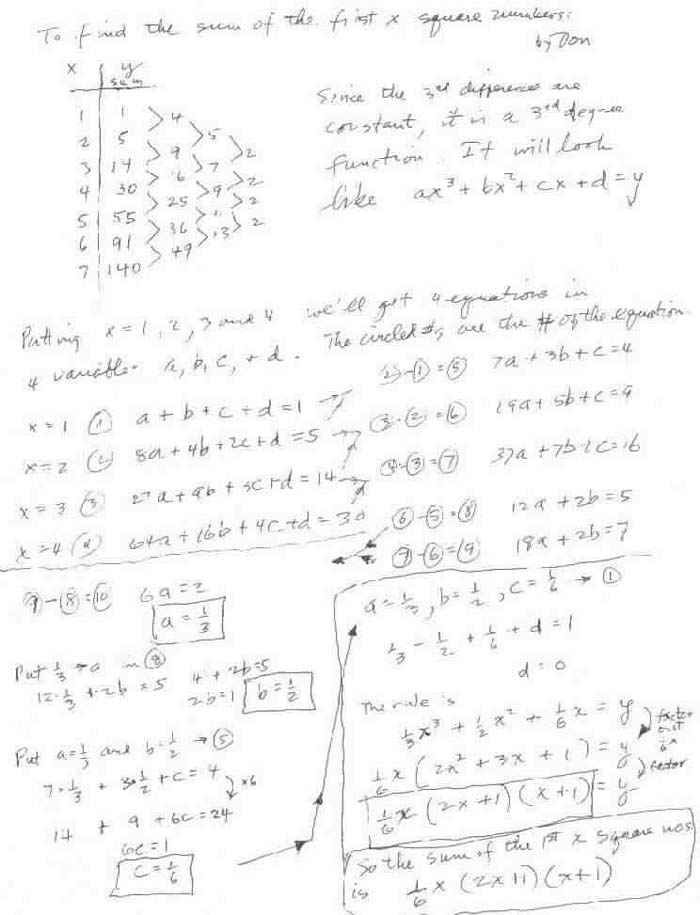 To find the sum of the first x square numbers:
by Don
x y
sum
1 1
2 5
3 14
4 30
5 55
6 91
7 140
4
9
16
25
36
49
5
7
9
11
13
2
2
2
2
Since the 3rd differences are
constant, it is a 3rd degree
function. It will look
like ax³ + bx² + cx + d = y
Putting x = 1, 2, 3 and 4 we'll get 4 equations in
4 variables a, b, c, + d. The circled #s are the # of the equation.
x = 1 ① a + b + c + d = 1
x = 2 ② 8a + 4b + 2c + d = 5
x = 3 ③ 27a + 9b + 3c + d = 14
x = 4 ④ 64a + 16b + 4c + d = 30
② - ① = ⑤ 7a + 3b + c = 4
③ - ② = ⑥ 19a + 5b + c = 9
④ - ③ = ⑦ 37a + 7b + c = 16
⑥ - ⑤ = ⑧ 12a + 2b = 5
⑦ - ⑥ = ⑨ 18a + 2b = 7
⑨ - ⑧ = ⑩ 6a = 2
a = 1/3
Put 1/3 → a in ⑧
12·1/3 + 2b = 5 4 + 2b = 5
2b = 1 b = 1/2
Put a = 1/3 and b = 1/2 → ⑤
7·1/3 + 3·1/2 + c = 4
x6
14 + 9 + 6c = 24
6c = 1
c = 1/6
a = 1/3, b = 1/2, c = 1/6 → ①
1/3 - 1/2 + 1/6 + d = 1
d = 0
The rule is
1/3x³ + 1/2x² + 1/6x = y
factor
out
1/6x
1/6x (2x² + 3x + 1) = y
factor
1/6x (2x+1)(x+1) = y
So the sum of the 1st x square nos.
is 1/6x (2x+1)(x+1)